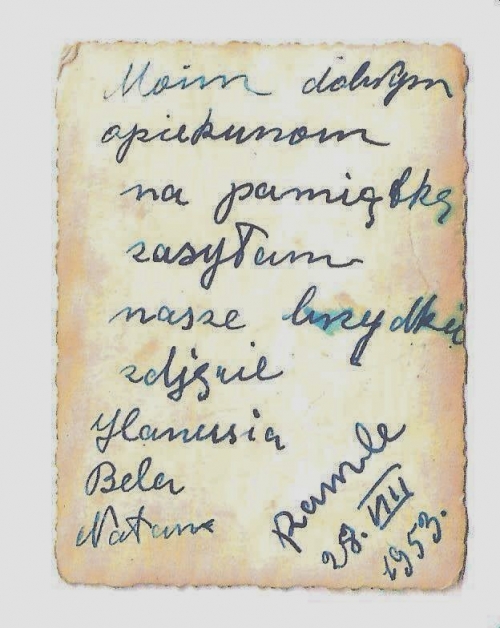 Moim dobrym
opiekunom
na pamiątkę
zasyłam
nasze brzydkie
zdjęcie
Hanusia
Bela
Natan
Ramle
28. VIII
1953.